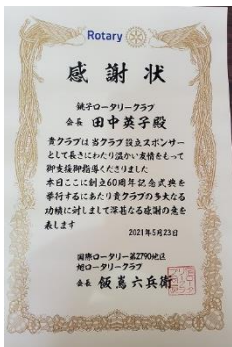 Rotary
感謝状
銚子ロータリークラブ
会長 田中英子殿
貴クラブは当クラブ設立スポンサー
として長きにわたり温かい友情をもって
御支援御指導くださりました
本日ここに創立60周年記念式典を
挙行するにあたり貴クラブの多大なる
功績に対しまして深甚なる感謝の意を
表します
2021年5月23日
国際ロータリー第2790地区
旭ロータリークラブ
会長 飯嶌六兵衛